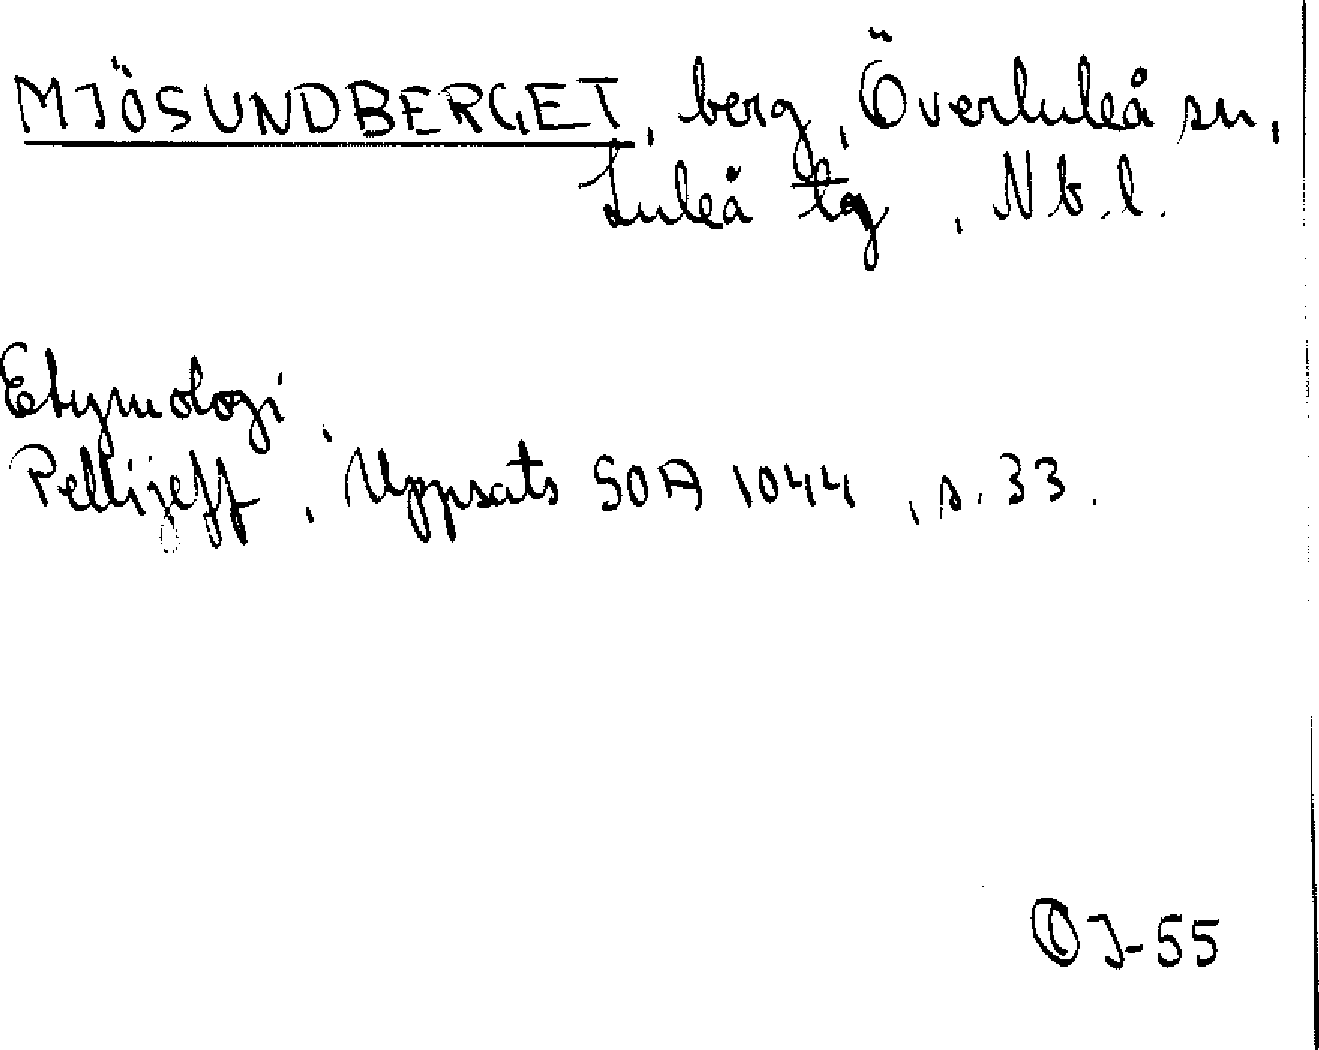 MJÖSUNDBERGET, berg, Överluleå sn,
Luleå tg, Nb.l.
Etymologi
Pellijeff, Uppsats SOA 1044, s. 33.
OJ-55